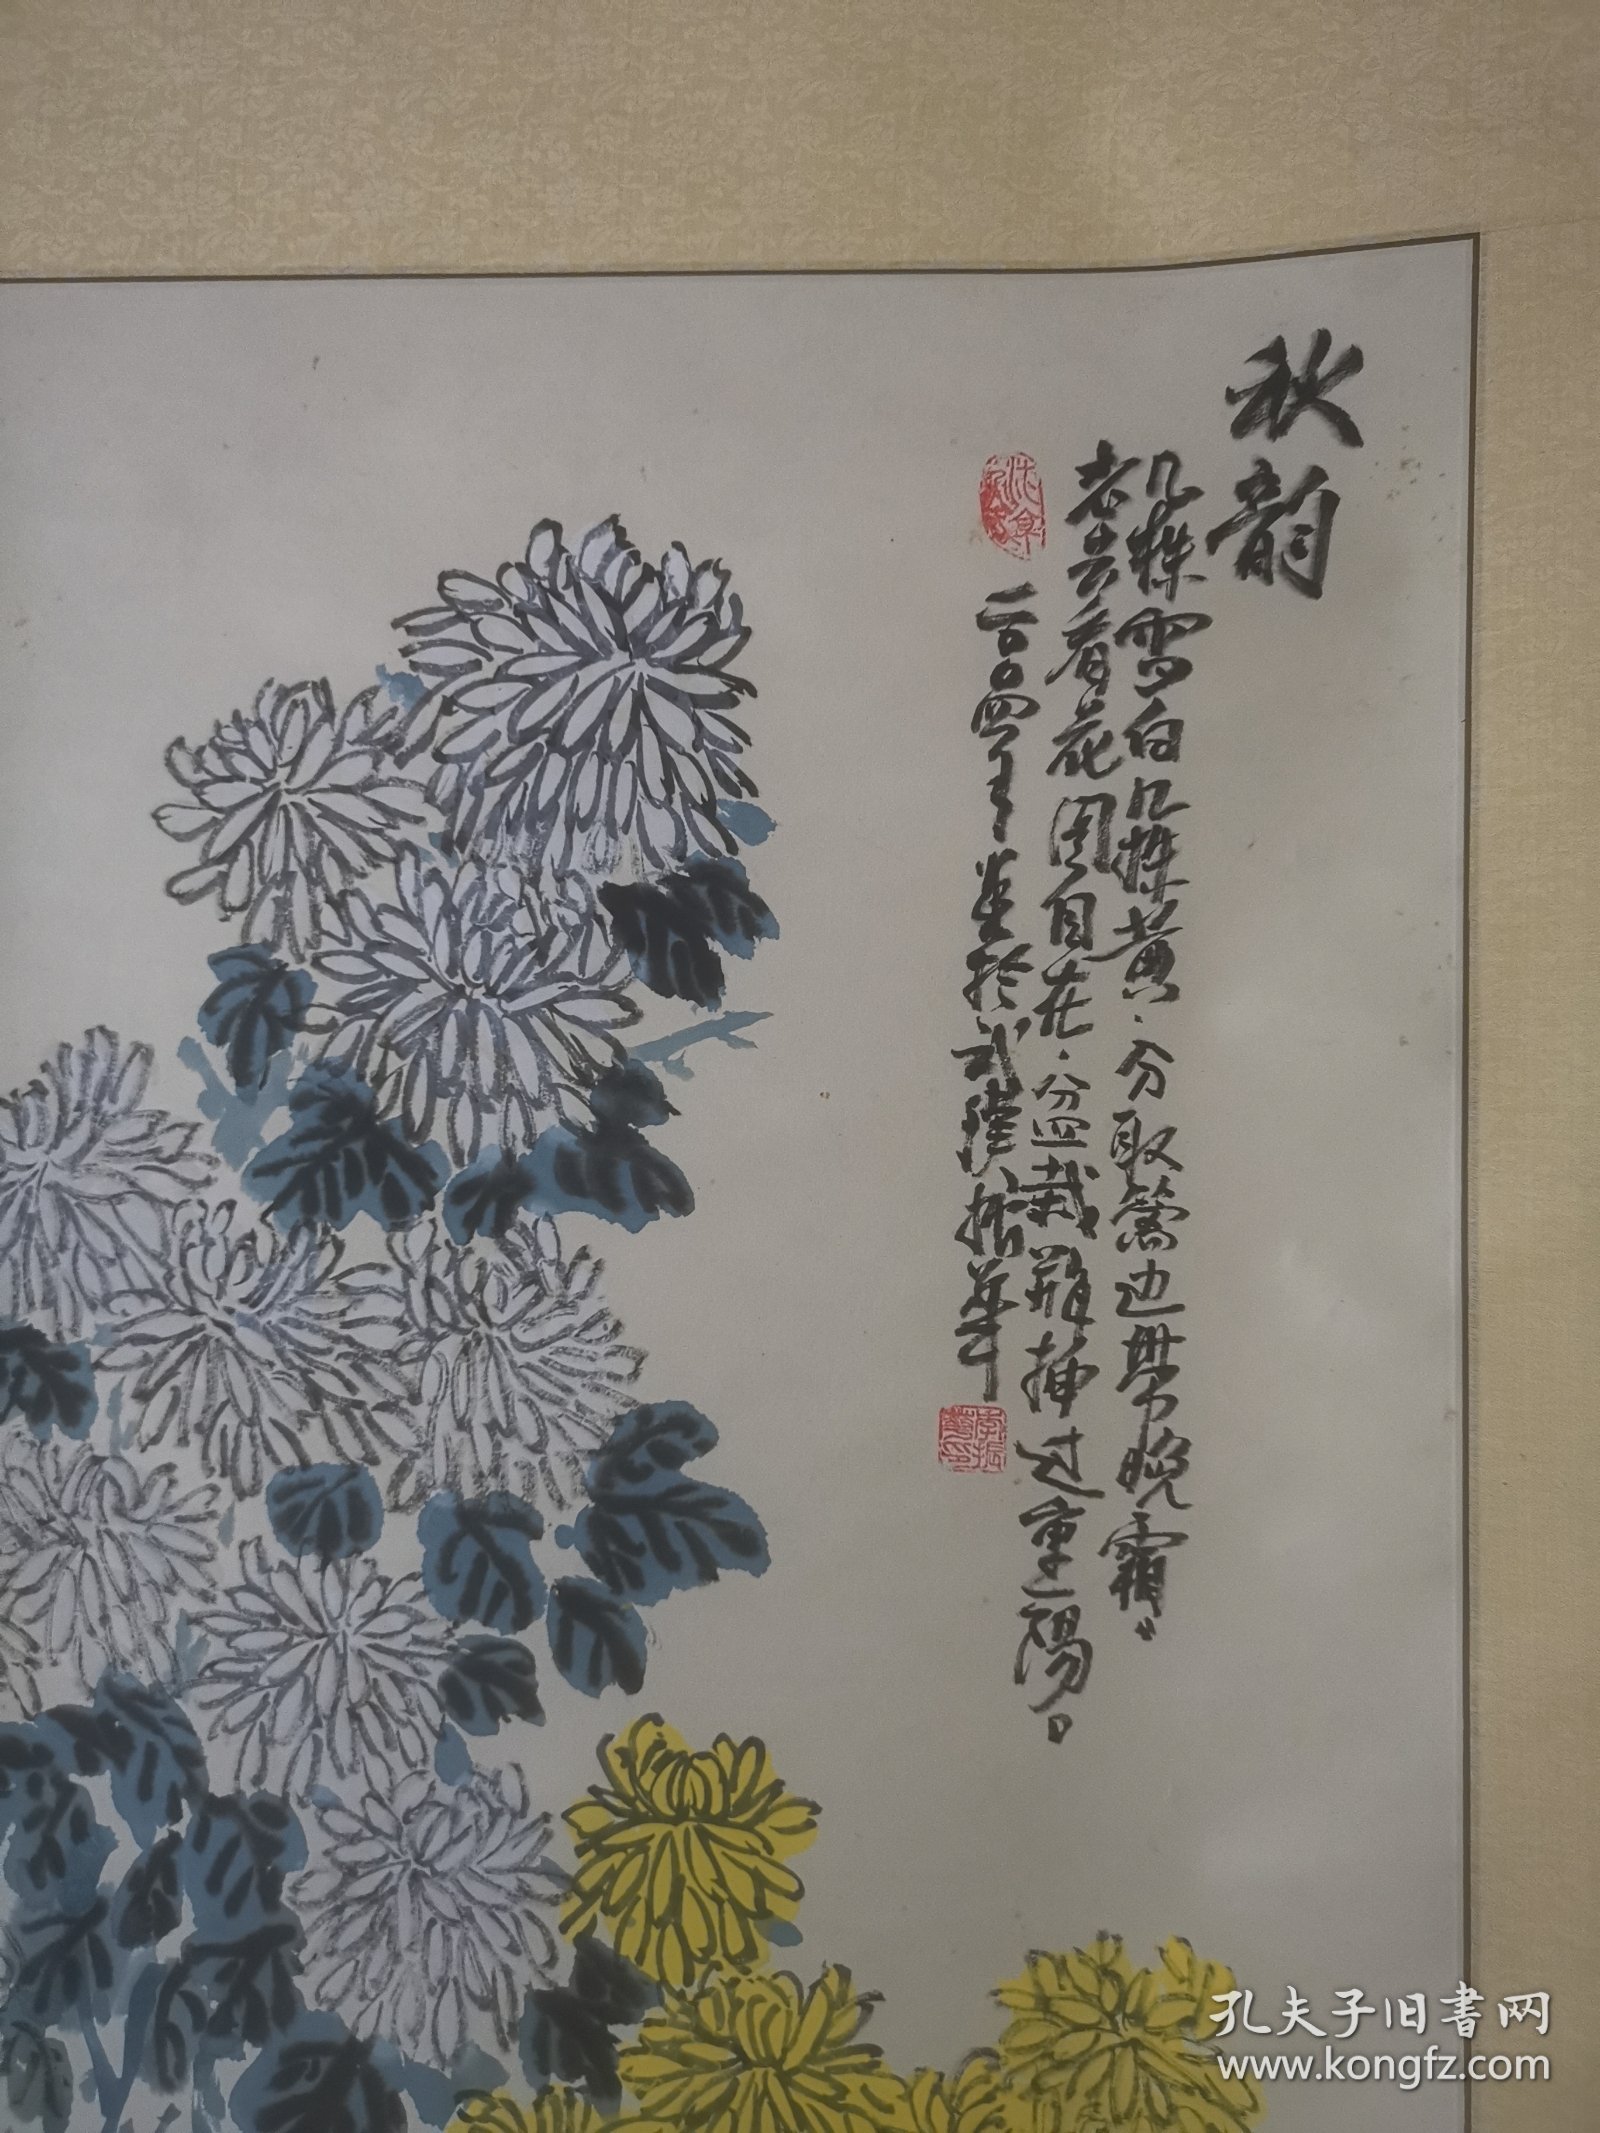 秋韵
几株雪白几株黄、分取篱边带晚霜。
老去看花图自在、盆栽瓶插过重阳。
二〇〇四年 于武汉 振华
孔夫子旧书网
www.kongfz.com